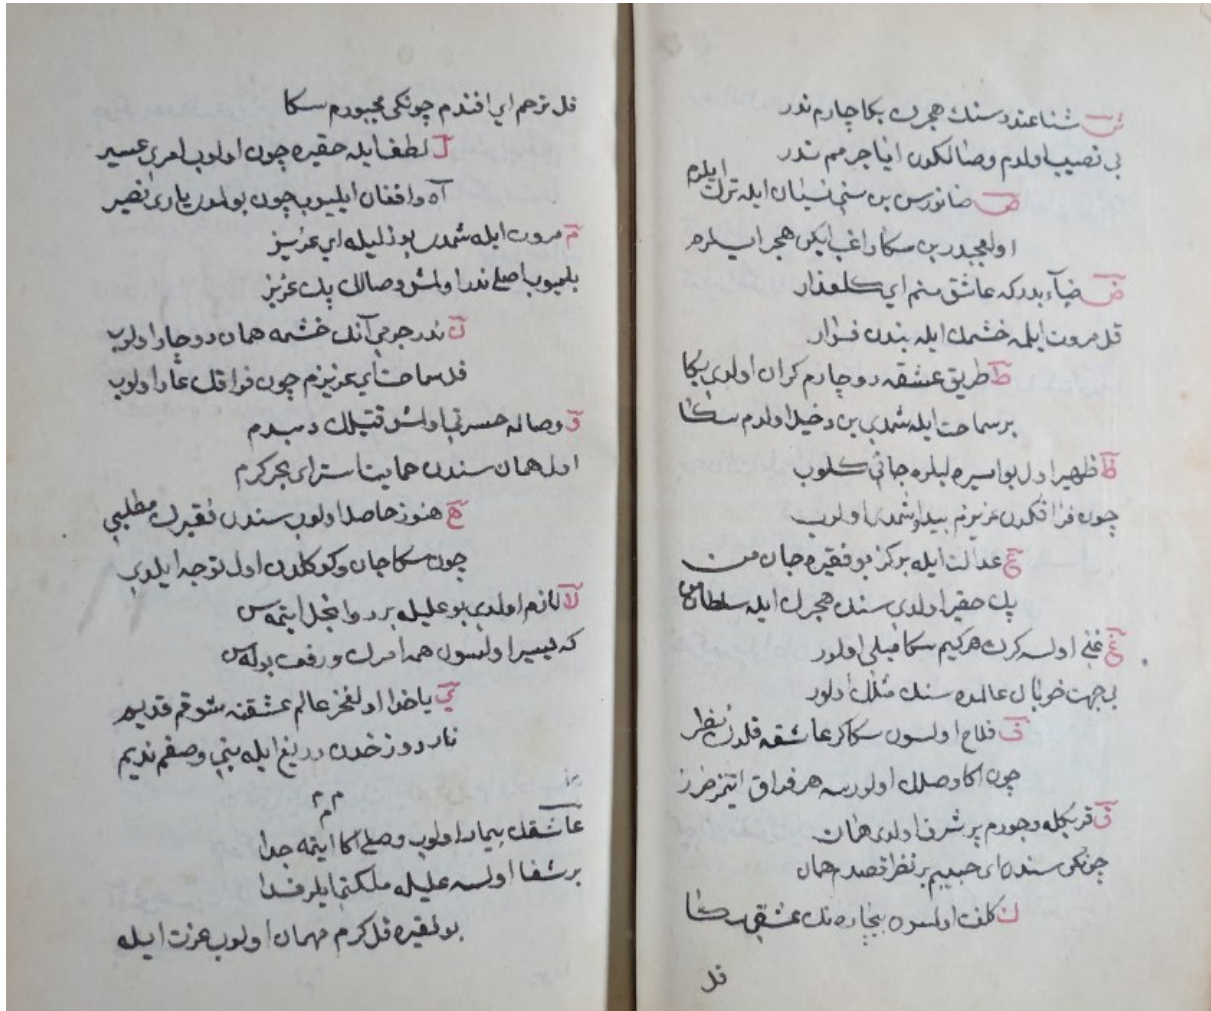 ش شناعتدو سنك هجرك بكا چارم ندر
بی نصیب اولدم وصالكدن ایا جرمم ندر
ص صانورسن بن سنی نسیان ایله ترك ایلرم
اولمجدر بن سكا راغب ایكن هجر ایلرم
ض ضیآء بدركه عاشق منم ای كلعذار
قل مروت ایلمه خشمك ایله بندن فرار
ط طریق عشقه دوچارم كران اولدی بكا
بر سماحت ایله شمدی بن دخیل اولدم سكا
ظ ظهیر اول بو اسیره لیلره جانی كلوب
چون فراقكدن عزیزم بیدار شمدی اولوب
ع عدالت ایله بر كز بو فقیره جان من
پك حقیر اولدی سنك هجرك ایله سلطان من
غ غنی اولسه كرك هركیم سكا میلی اولور
بی جهت خوبان عالمده سنك مثلك اولور
ف فلاح اولسون سكا كر عاشقه قلدك نظر
چون اكا وصلك اولورسه هر فراق ایتمز ضرر
ق قربكله وجودم پر شرف اولدی همان
چونكی سندن ای حبیبم بر نظر قصدم همان
ك كلف اولسون بیچاره نك عشقی سكا
قل
قل ترحم ای افندم چونكی مجبورم سكا
ل لطف ایله حقیره چون اولوب امری عسیر
آه وافغان ایلیوب چون بولمدی یاری نصیر
م مروت ایله شمدی بو ذلیله ای عزیز
بلمیوب اصلی ندر اولمش وصالك پك عزیز
ن ندر جرمی آنك خشمه همان دوچار اولوب
قل سماحت ای عزیزم چون فراقك عار اولوب
و وصاله حسرتی اولمش قتیلك دمبدم
اول همان سندن حمایت استر ای بحر كرم
ه هنوز حاصل اولوب سندن فقیرك مطلبی
چون سكا جان وكوكلدن اول توجه ایلدی
لا لازم اولدی بو علیله بر دوا بخل ایتمه سن
كه یسیر اولسون همه امرك و رفعت بوله سن
ی یا خدا اول فخر عالم عشقنه شوقم قدیم
نار دوزخدن دریغ ایله بنی وصفم ندیم
م م م
عاشقك بیمار اولوب وصلی اكا ایتمه جدا
بر شفا اولسه علیله ملكتی ایلر فدا
بو فقیره قل كرم مهمان اولوب عزت ایله